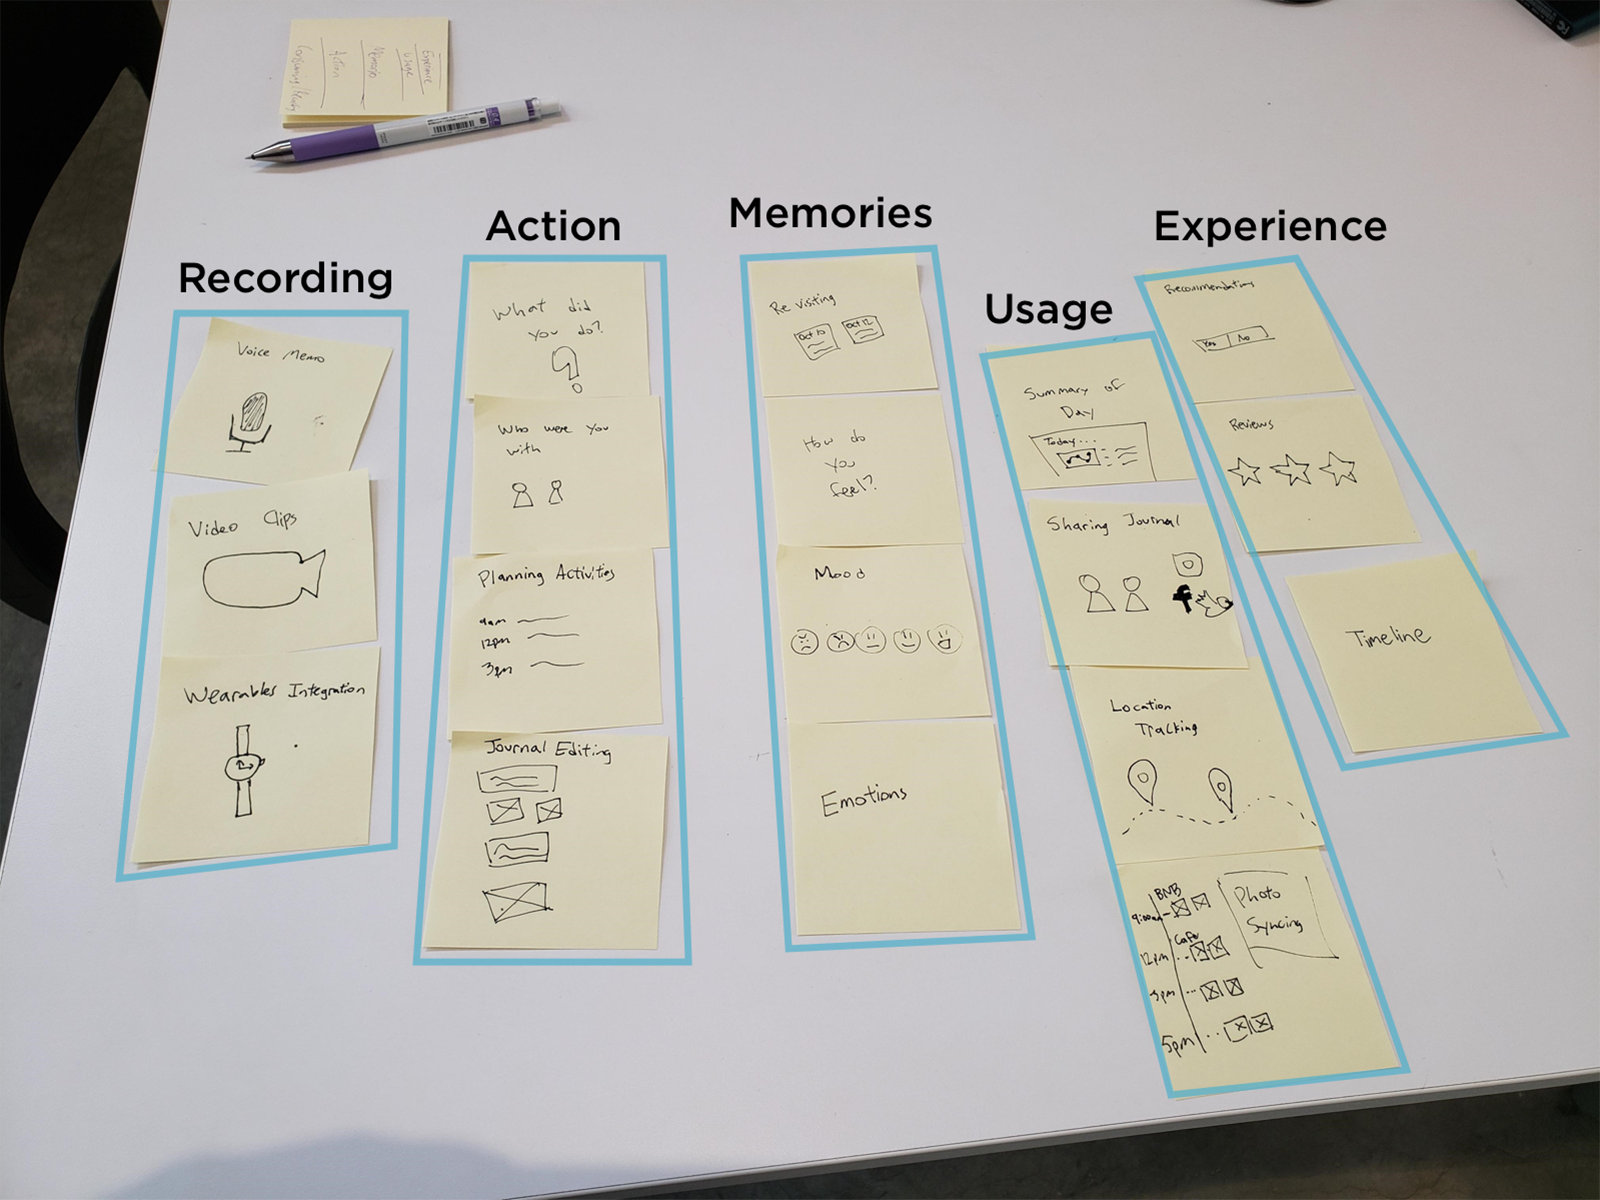 Experience
Usage
Memories
Action
Recording
Action
Memories
Usage
Experience
Voice Memo
Video Clips
Wearables Integration
What did
you do?
Who were you
with
Planning Activities
9am
12pm
3pm
Journal Editing
Re visiting
Oct 10
Oct 12
How do
you
feel?
Mood
Emotions
Summary of
Day
Today...
Sharing Journal
f
Location
Tracking
BNB
9:00am
Cafe
12pm
3pm
5pm
Photo
Syncing
Recommendations
Yes
No
Reviews
Timeline